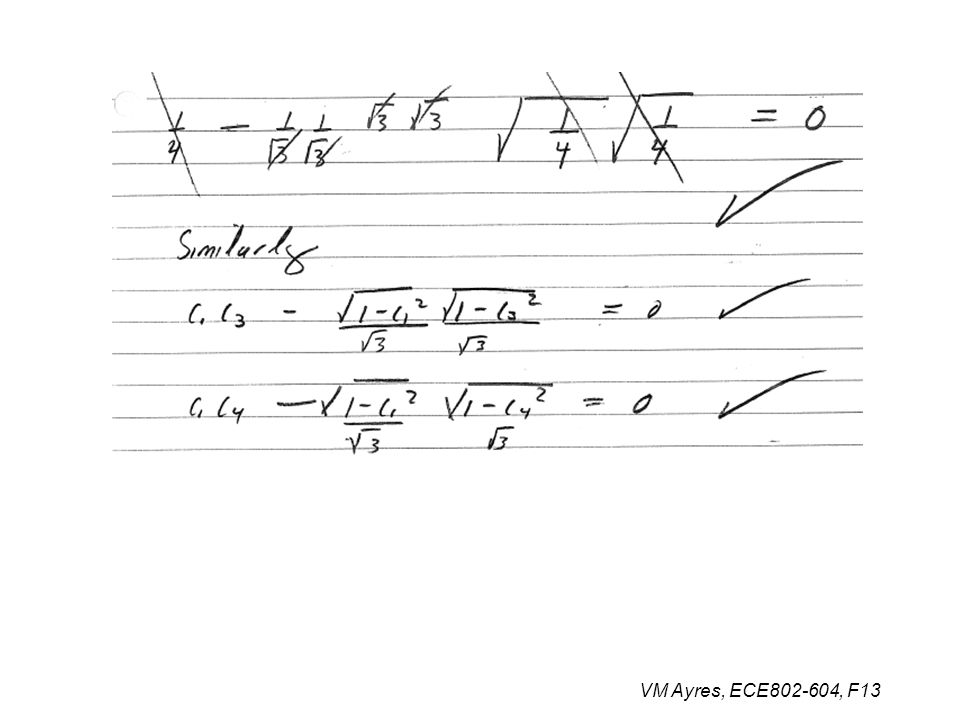 1/4 - 1/√3 1/√3 √3 √3 √(1/4) √(1/4) = 0 ✓
Similarly
C₁ C₃ - √(1-C₁²)/√3 √(1-C₃²)/√3 = 0 ✓
C₁ C₄ - √(1-C₁²)/√3 √(1-C₄²)/√3 = 0 ✓
VM Ayres, ECE802-604, F13